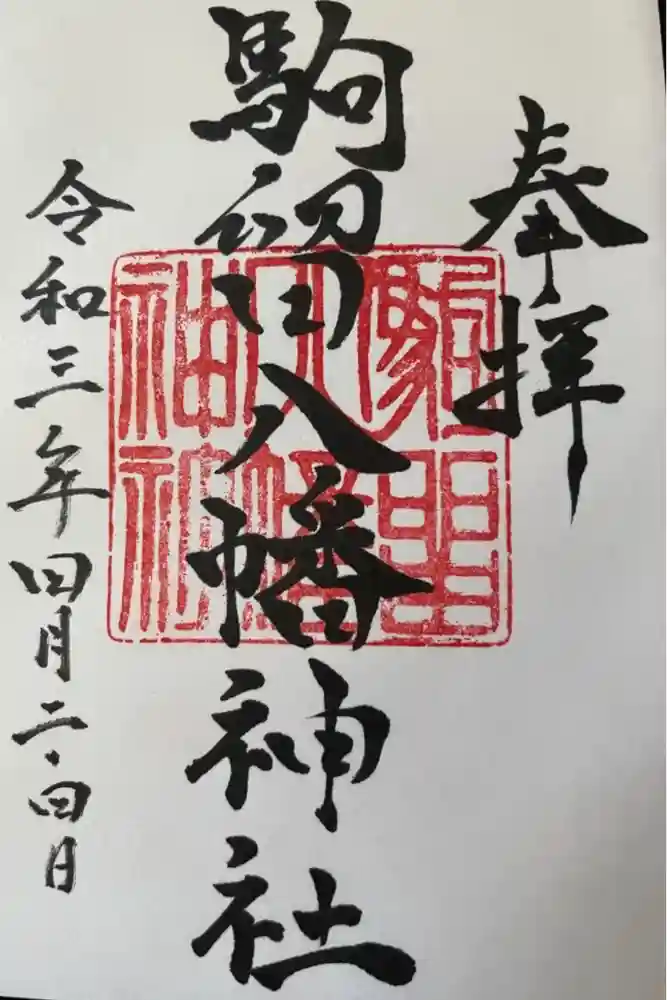 奉拝
駒留八幡神社
駒留八幡神社
令和三年四月二・四日